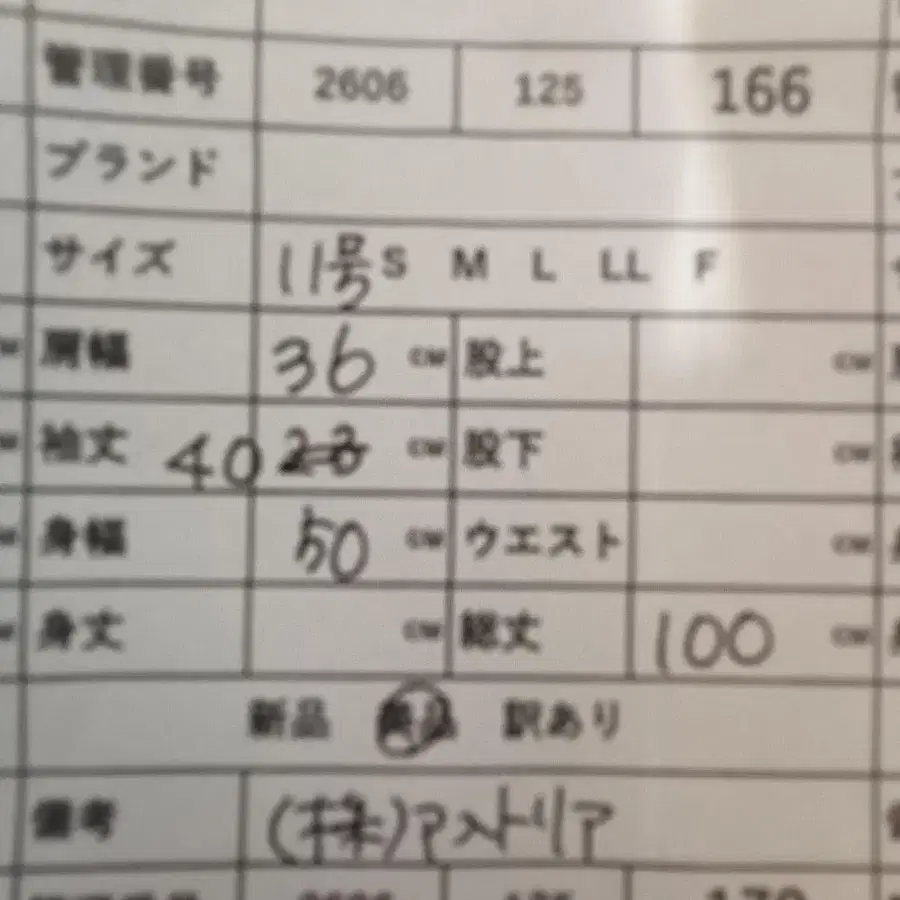 管理番号 2606 125 166
ブランド
サイズ 11号 S M L LL F
肩幅 36 CM 股上 CM
袖丈 40 23 CM 股下 CM
身幅 50 CM ウエスト CM
身丈 CM 総丈 100 CM
新品 美品 訳あり
備考 (株)アストリア
管理番号 2606 125 170